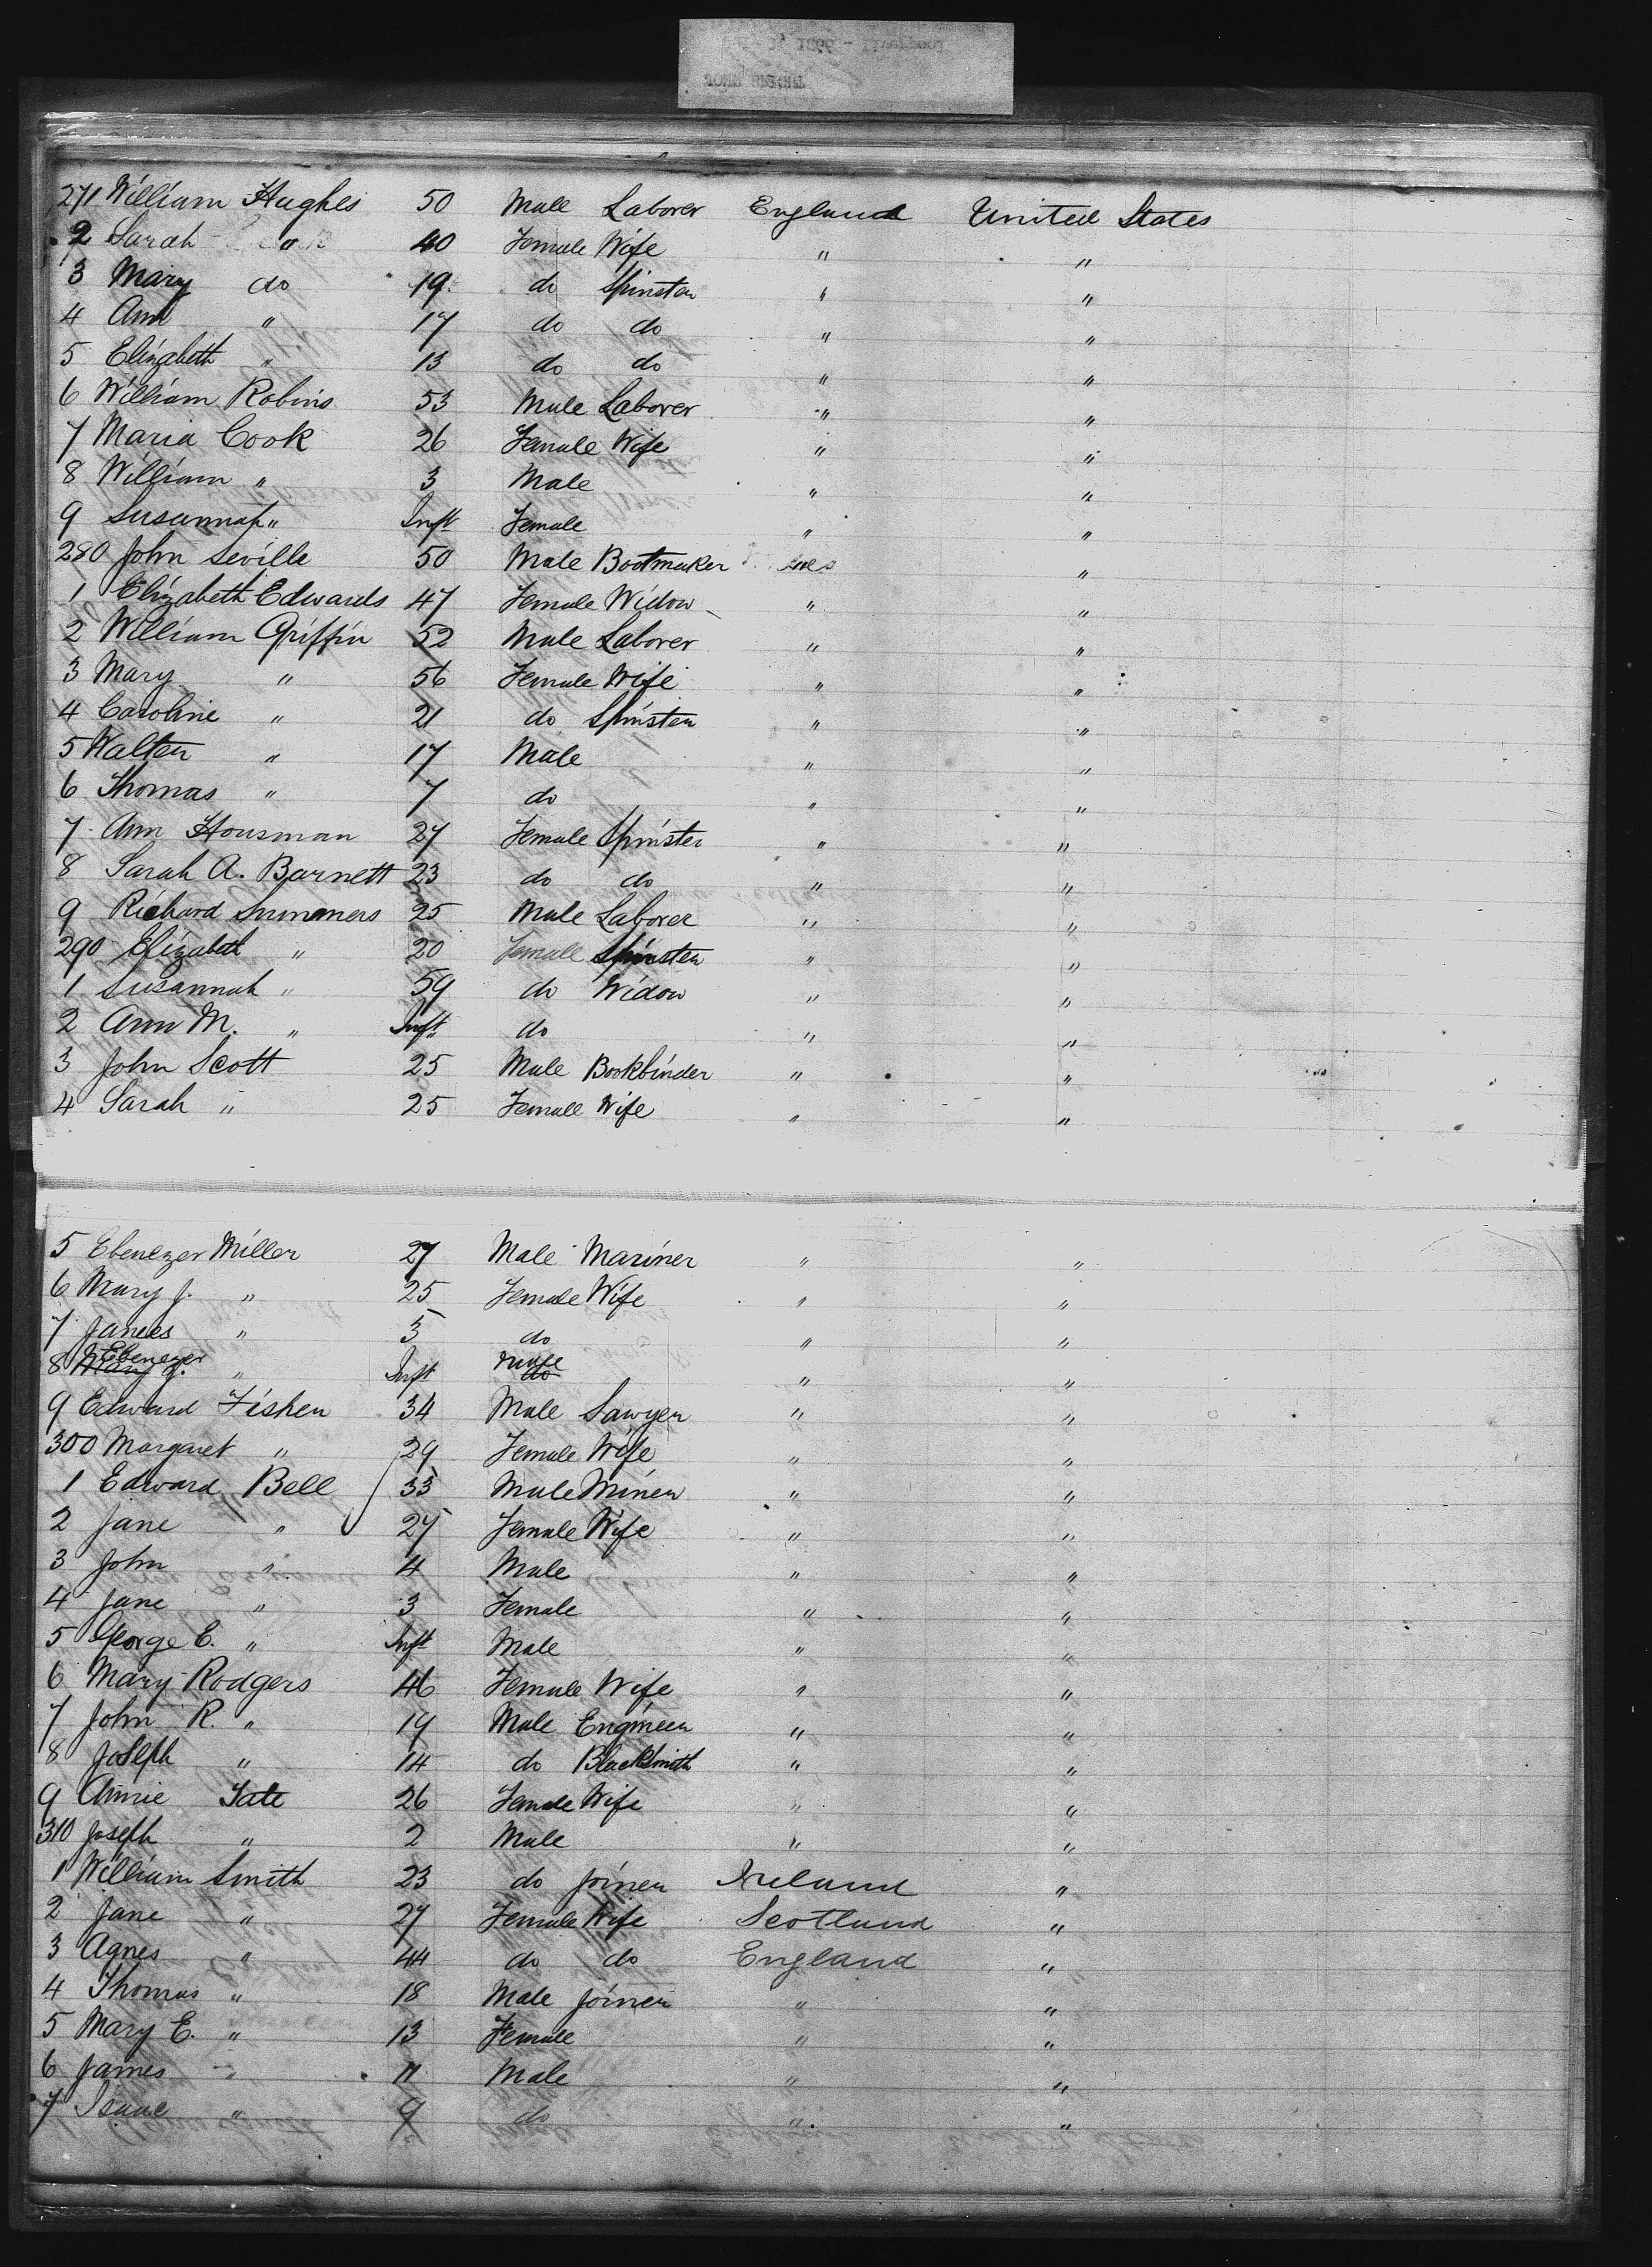 271 William Hughes 50 Male Laborer England United States
2 Sarah " 40 Female Wife " "
3 Mary do 19 do Spinster " "
4 Ann " 17 do do " "
5 Elizabeth " 13 do do " "
6 William Robins 53 Male Laborer " "
7 Maria Cook 26 Female Wife " "
8 William " 3 Male " "
9 Susannah " Inft Female " "
280 John Seville 50 Male Bootmaker "
1 Elizabeth Edwards 47 Female Widow " "
2 William Griffin 52 Male Laborer " "
3 Mary " 56 Female Wife " "
4 Caroline " 21 do Spinster " "
5 Walter " 17 Male " "
6 Thomas " 7 do " "
7 Ann Housman 27 Female Spinster " "
8 Sarah A. Barnett 23 do do " "
9 Richard Summers 25 Male Laborer " "
290 Elizabeth " 20 Female Spinster " "
1 Susannah " 59 do Widow " "
2 Ann M. " Inft do " "
3 John Scott 25 Male Bookbinder " "
4 Sarah " 25 Female Wife " "
5 Ebenezer Miller 27 Male Mariner " "
6 Mary J. " 25 Female Wife " "
7 James " 3 do " "
8 Mary J. Ebenezer " Inft do male " "
9 Edward Fisher 34 Male Sawyer " "
300 Margaret " 29 Female Wife " "
1 Edward Bell 33 Male Miner " "
2 Jane " 27 Female Wife " "
3 John " 4 Male " "
4 Jane " 3 Female " "
5 George E. " Inft Male " "
6 Mary Rodgers 46 Female Wife " "
7 John R. " 19 Male Engineer " "
8 Joseph " 14 do Blacksmith " "
9 Annie Tate 26 Female Wife " "
310 Joseph " 2 Male " "
1 William Smith 23 do Joiner Ireland "
2 Jane " 27 Female Wife Scotland "
3 Agnes " 44 do do England "
4 Thomas " 18 Male Joiner " "
5 Mary E. " 13 Female " "
6 James " 11 Male " "
7 Isaac " 9 do " "